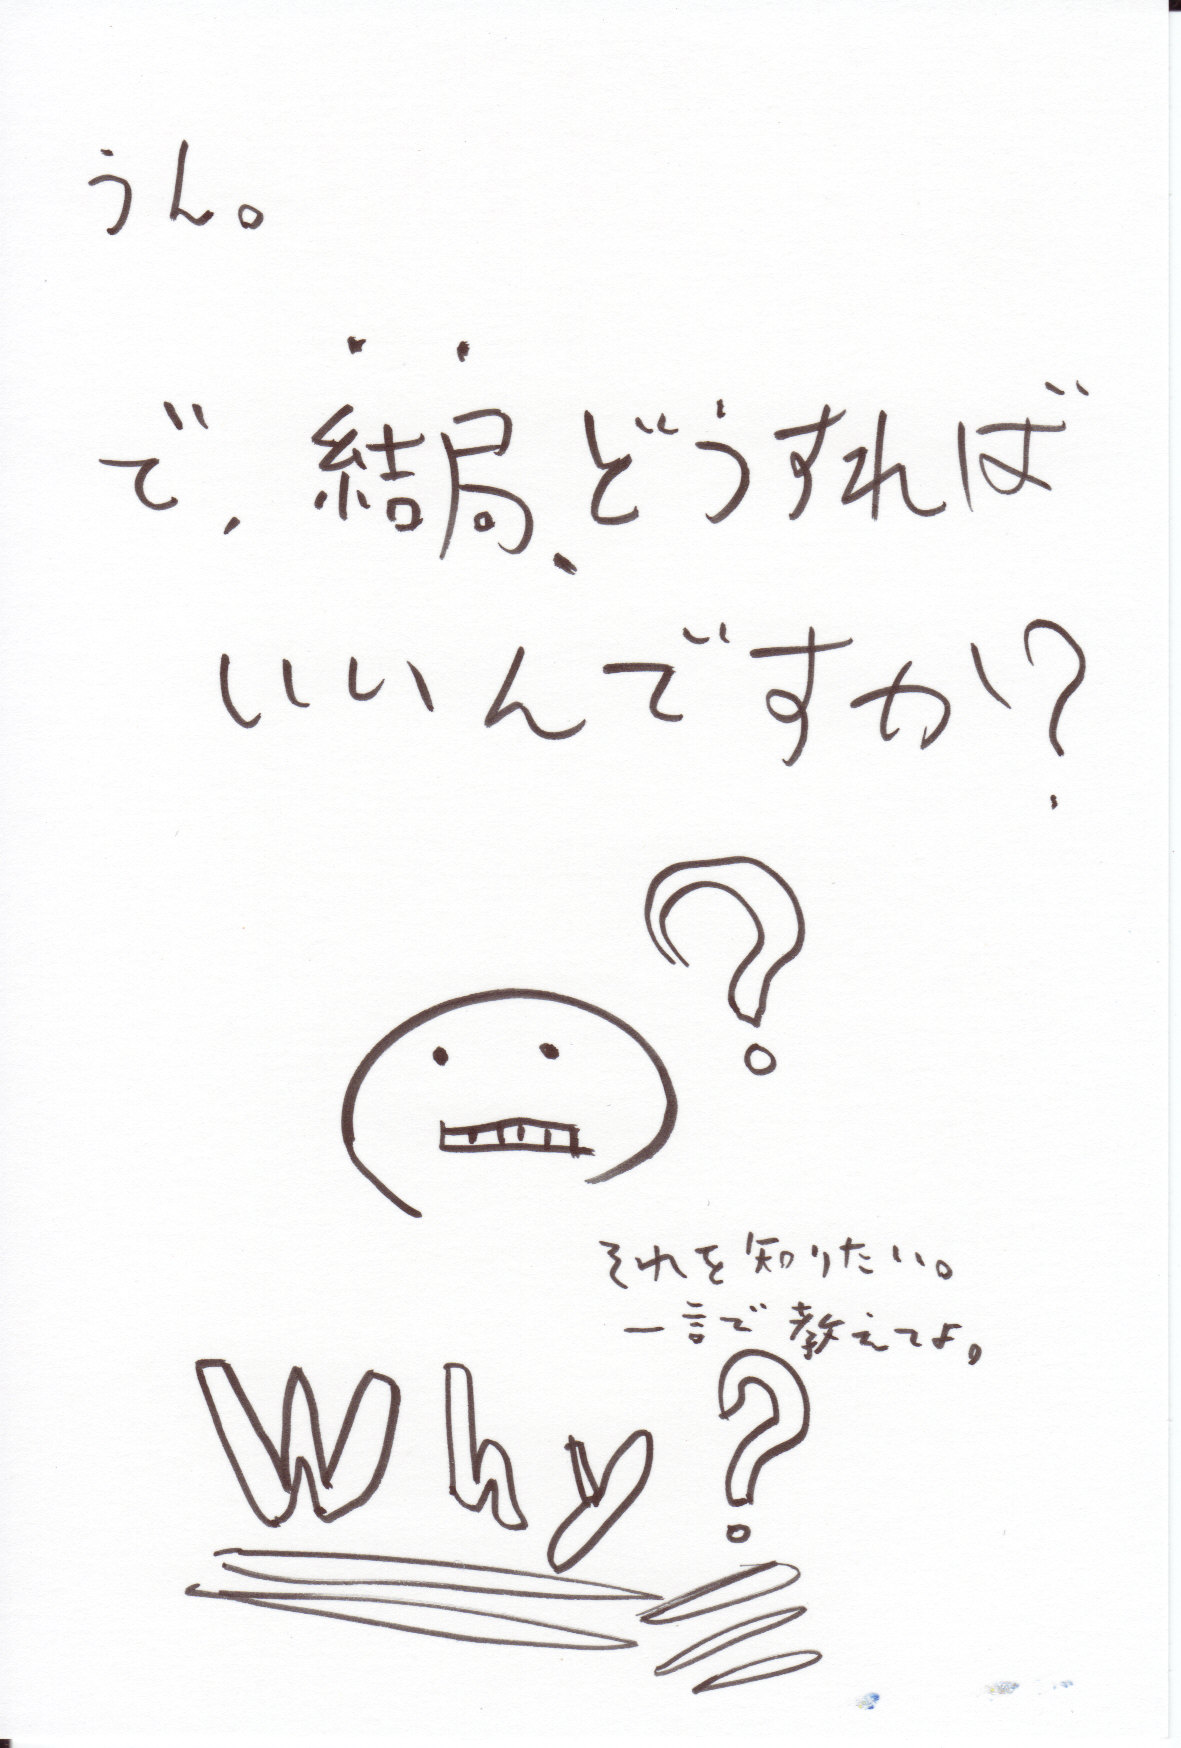 うん。
で、結局、どうすれば
いいんですか?
?
それを知りたい。
一言で教えてよ。
Why?